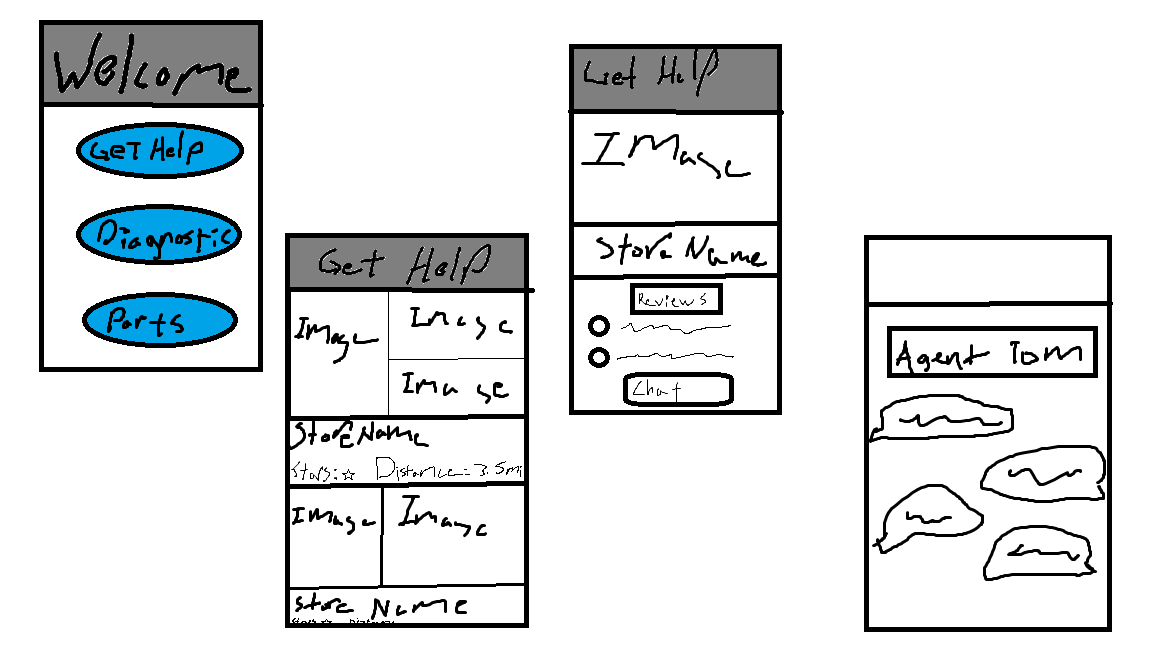 Welcome
Get Help
Diagnostic
Parts
Get Help
Image
Image
Image
Store Name
Stars: ☆ Distance = 3.5mi
Image
Image
Store Name
Stars: ☆ Distance
Get Help
Image
Store Name
Reviews
Chat
Agent Tom